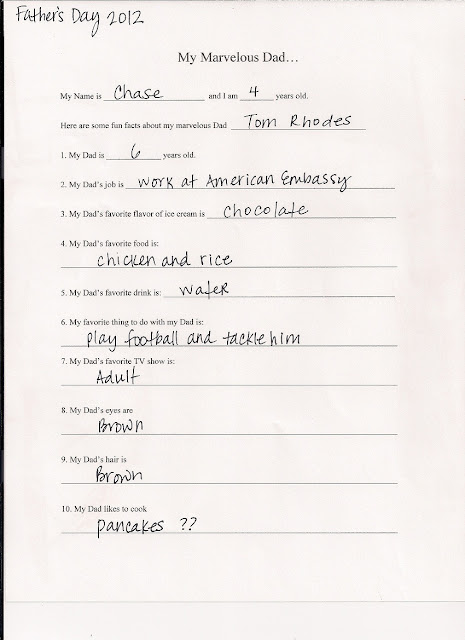 Father's Day 2012
My Marvelous Dad...
My Name is Chase and I am 4 years old.
Here are some fun facts about my marvelous Dad Tom Rhodes
1. My Dad is 6 years old.
2. My Dad's job is work at American Embassy
3. My Dad's favorite flavor of ice cream is chocolate
4. My Dad's favorite food is:
chicken and rice
5. My Dad's favorite drink is: water
6. My favorite thing to do with my Dad is:
play football and tackle him
7. My Dad's favorite TV show is:
Adult
8. My Dad's eyes are
Brown
9. My Dad's hair is
Brown
10. My Dad likes to cook
pancakes ??